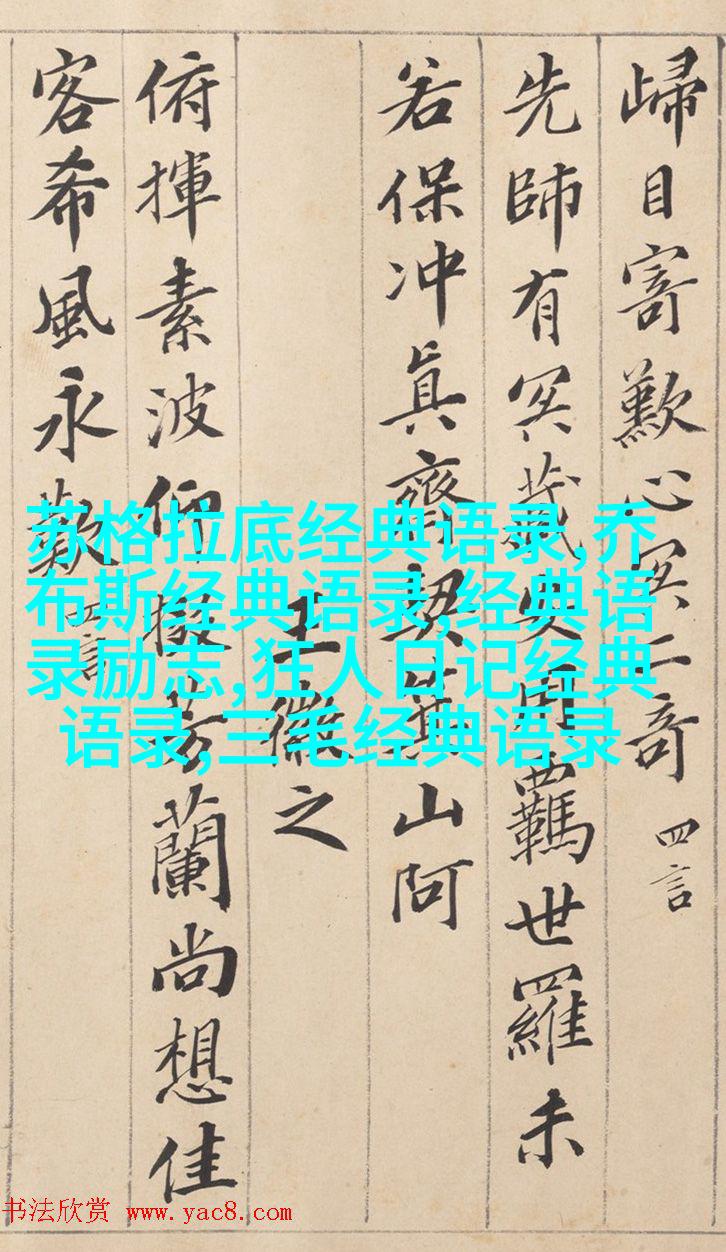 歸目寄歎心冥二奇 四言
先師有冥藏安用羈世羅未
若保冲眞齊契箕山阿
王徽之
俯揮素波仰掇芳蘭尚想佳
客希風永歎 四言
苏格拉底经典语录,乔
布斯经典语录,经典语
录励志,狂人日记经典
语录,三毛经典语录
书法欣赏 www.yac8.com